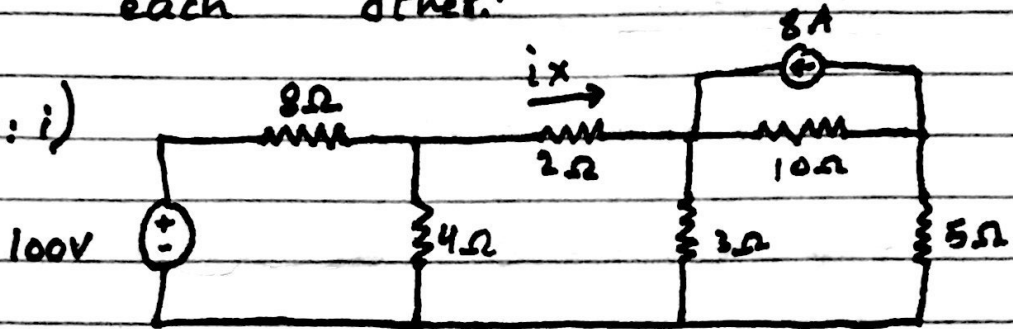 each other.
8A
: i)
8Ω
ix
2Ω
10Ω
100V
+
-
4Ω
3Ω
5Ω